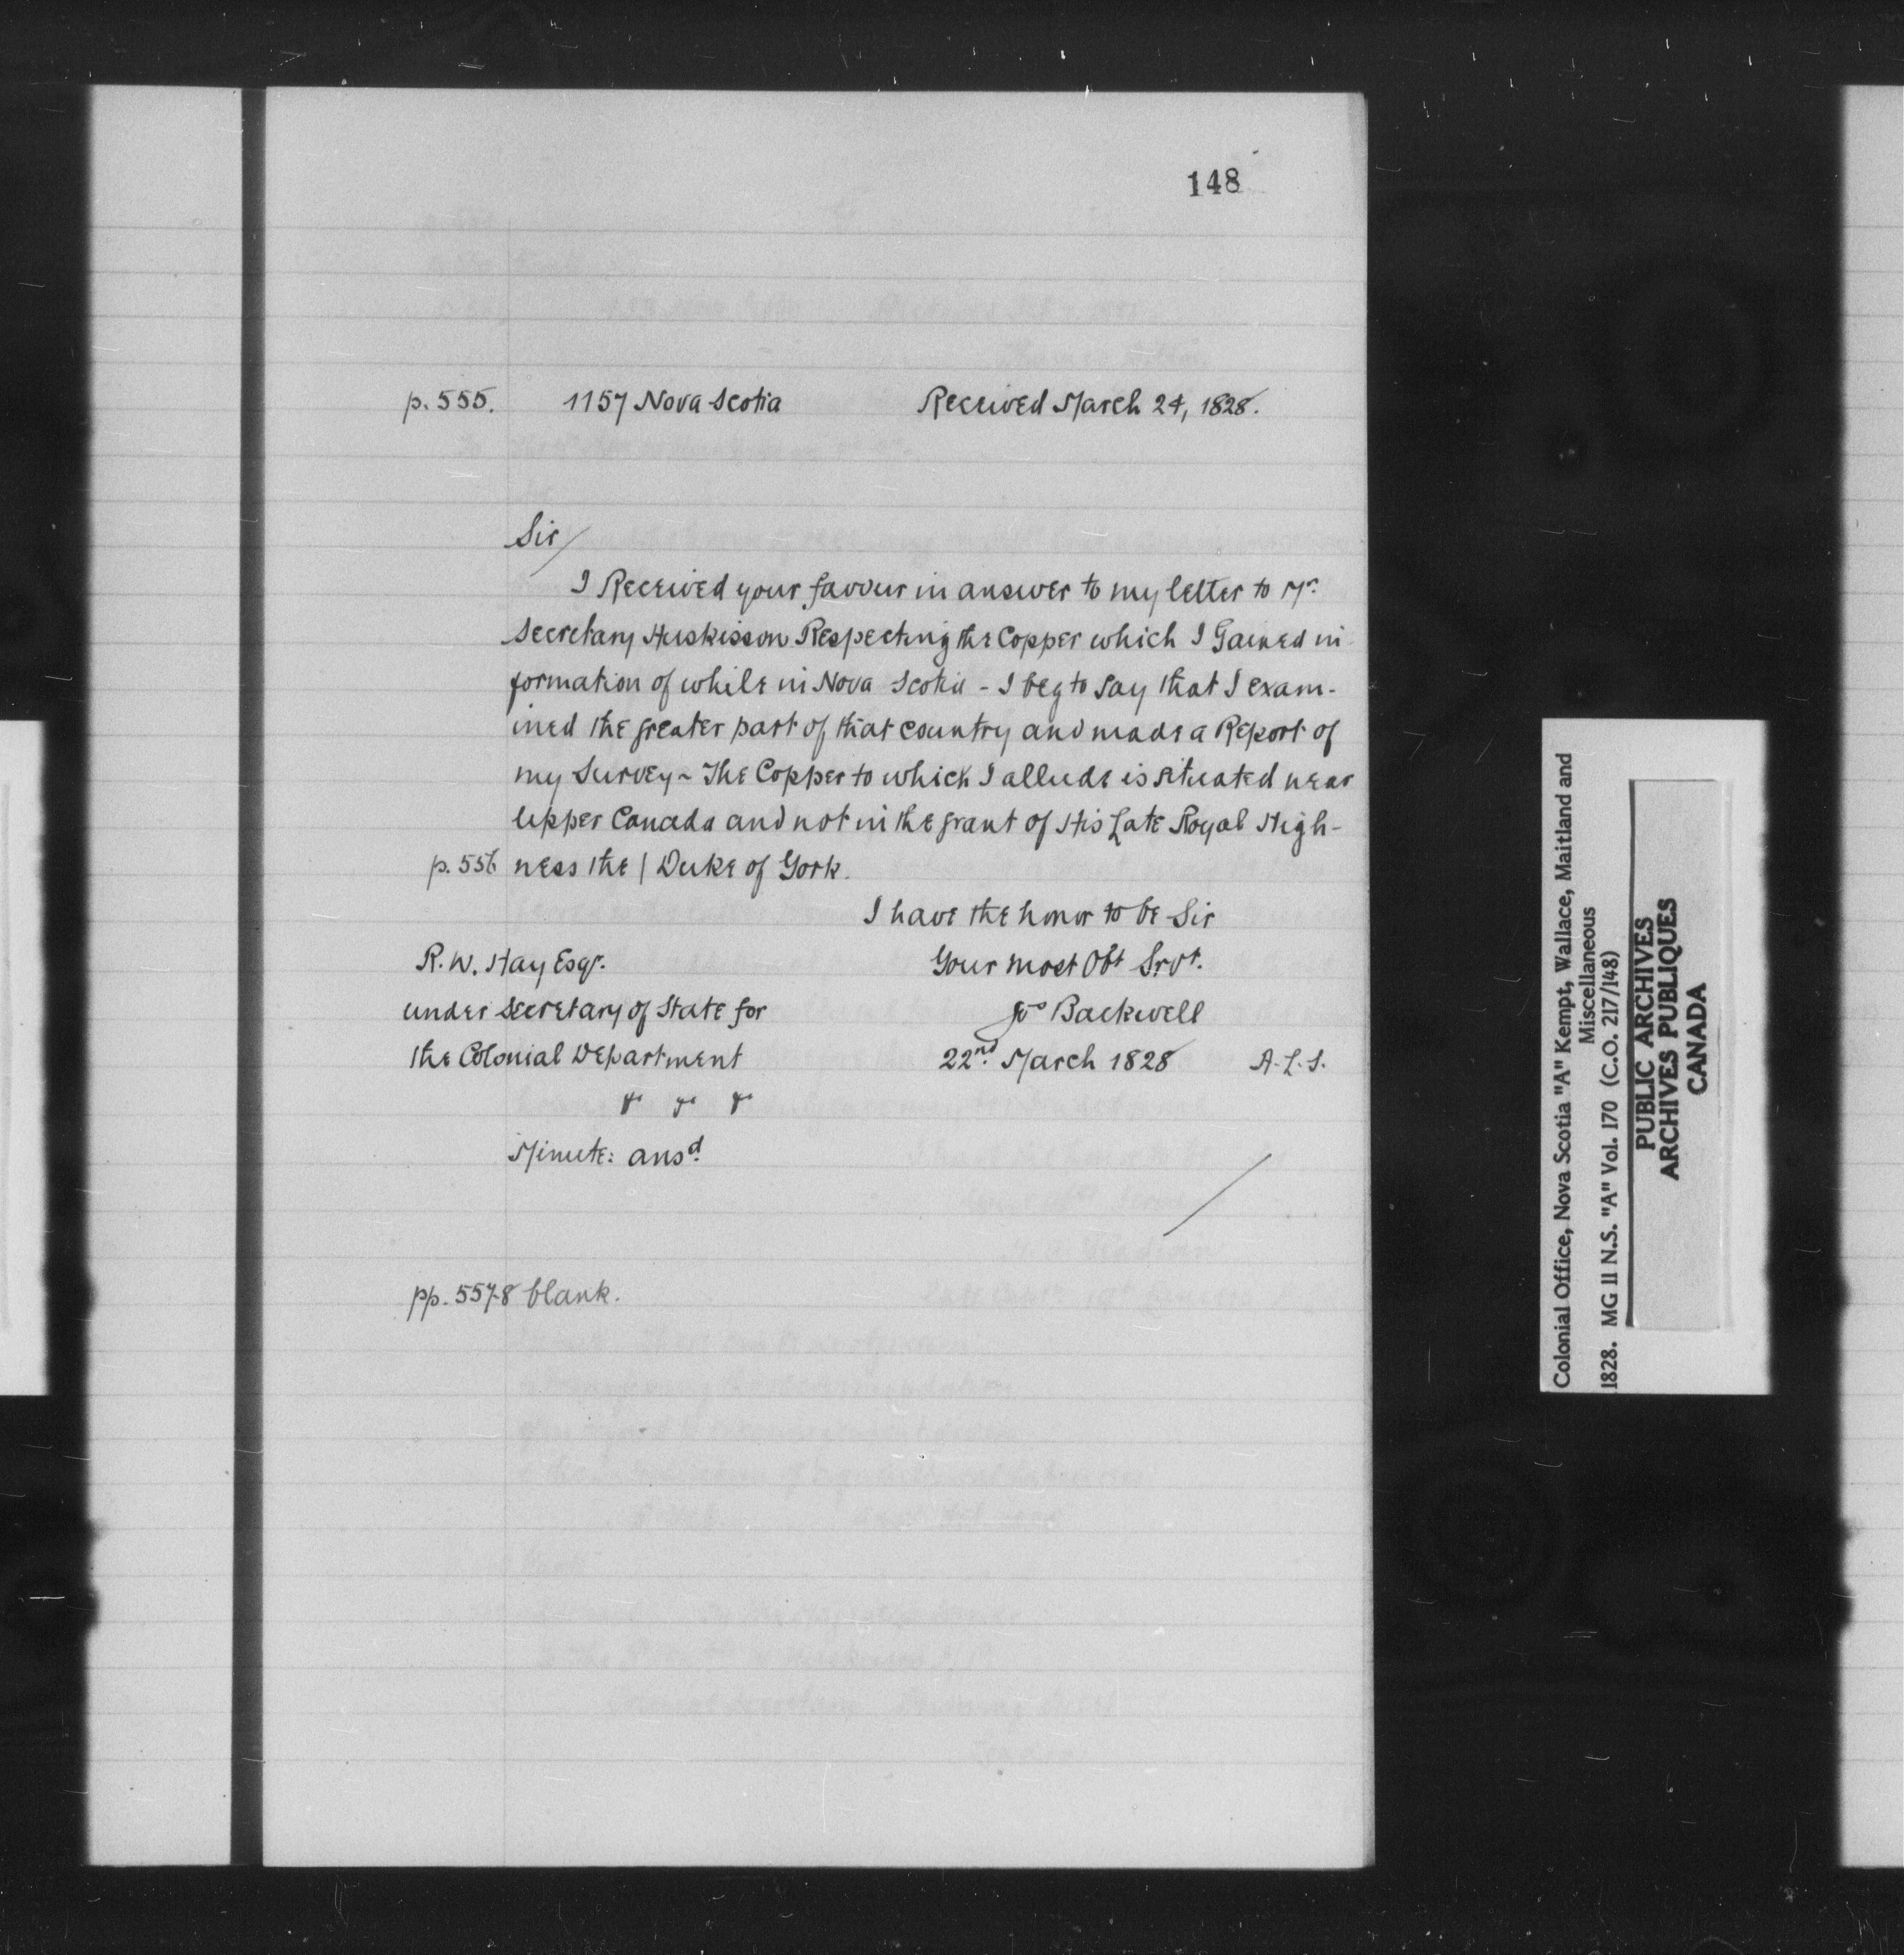 148
p. 555. 1157 Nova Scotia Received March 24, 1828.
Sir/
I Received your favour in answer to my letter to Mr.
Secretary Huskisson Respecting the Copper which I Gained in-
formation of while in Nova Scotia - I beg to say that I exam-
ined the greater part of that country and made a Report of
my Survey ~ The Copper to which I allude is situated near
Upper Canada and not in the grant of His Late Royal High-
p. 556 ness the | Duke of York.
I have the honor to be Sir
R. W. Hay Esqr. Your most Obt Srvt.
under Secretary of State for Jno Backwell
the Colonial Department 22nd. March 1828 A.L.S.
Minute: ansd.
pp. 557-8 blank.
Colonial Office, Nova Scotia "A" Kempt, Wallace, Maitland and
Miscellaneous
1828. MG 11 N.S. "A" Vol. 170 (C.O. 217/148)
PUBLIC ARCHIVES
ARCHIVES PUBLIQUES
CANADA